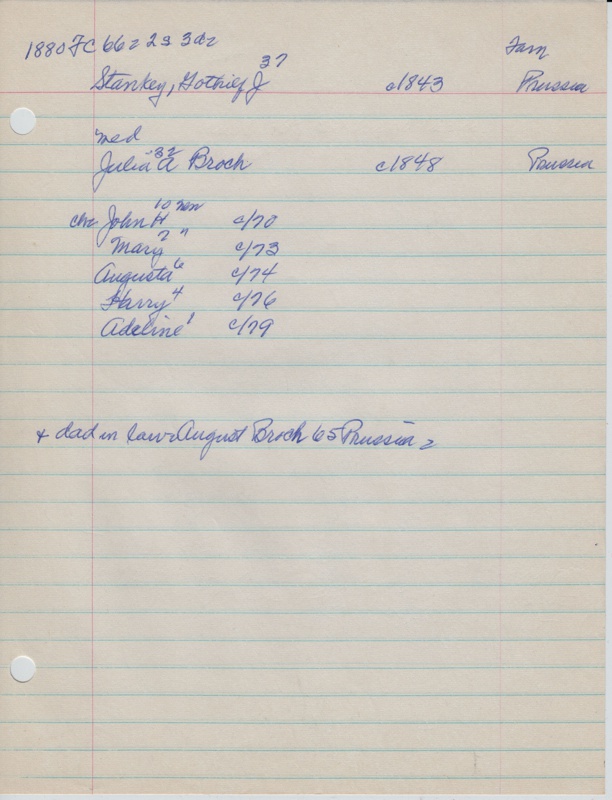 1880 FC 66 2 2s 3d2 Fam
37
Stankey, Gothief J c1843 Prussia
med
32
Julia A Broch c1848 Prussia
10
chn John H c/70
7 "
Mary c/73
6
Augusta c/74
4
Harry c/76
1
Adeline c/79
+ dad in law August Broch 65 Prussia